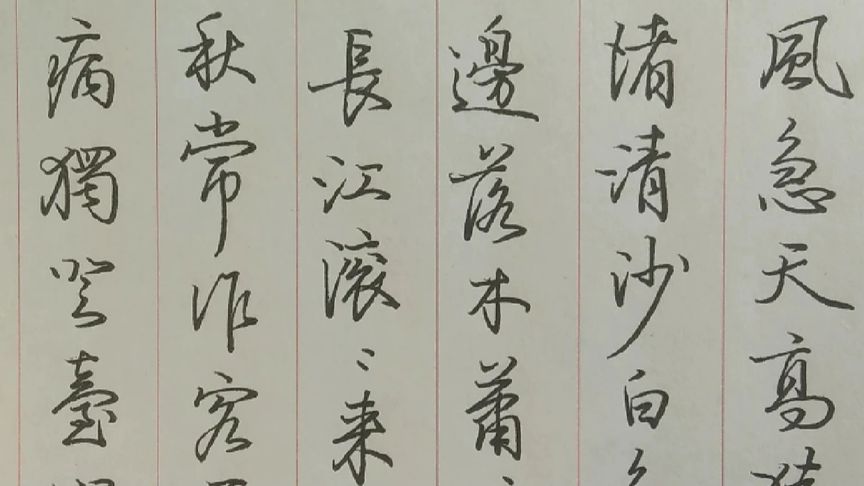 風急天高猿
渚清沙白鳥
邊落木蕭
長江滾〻来
秋常作客
病獨登臺